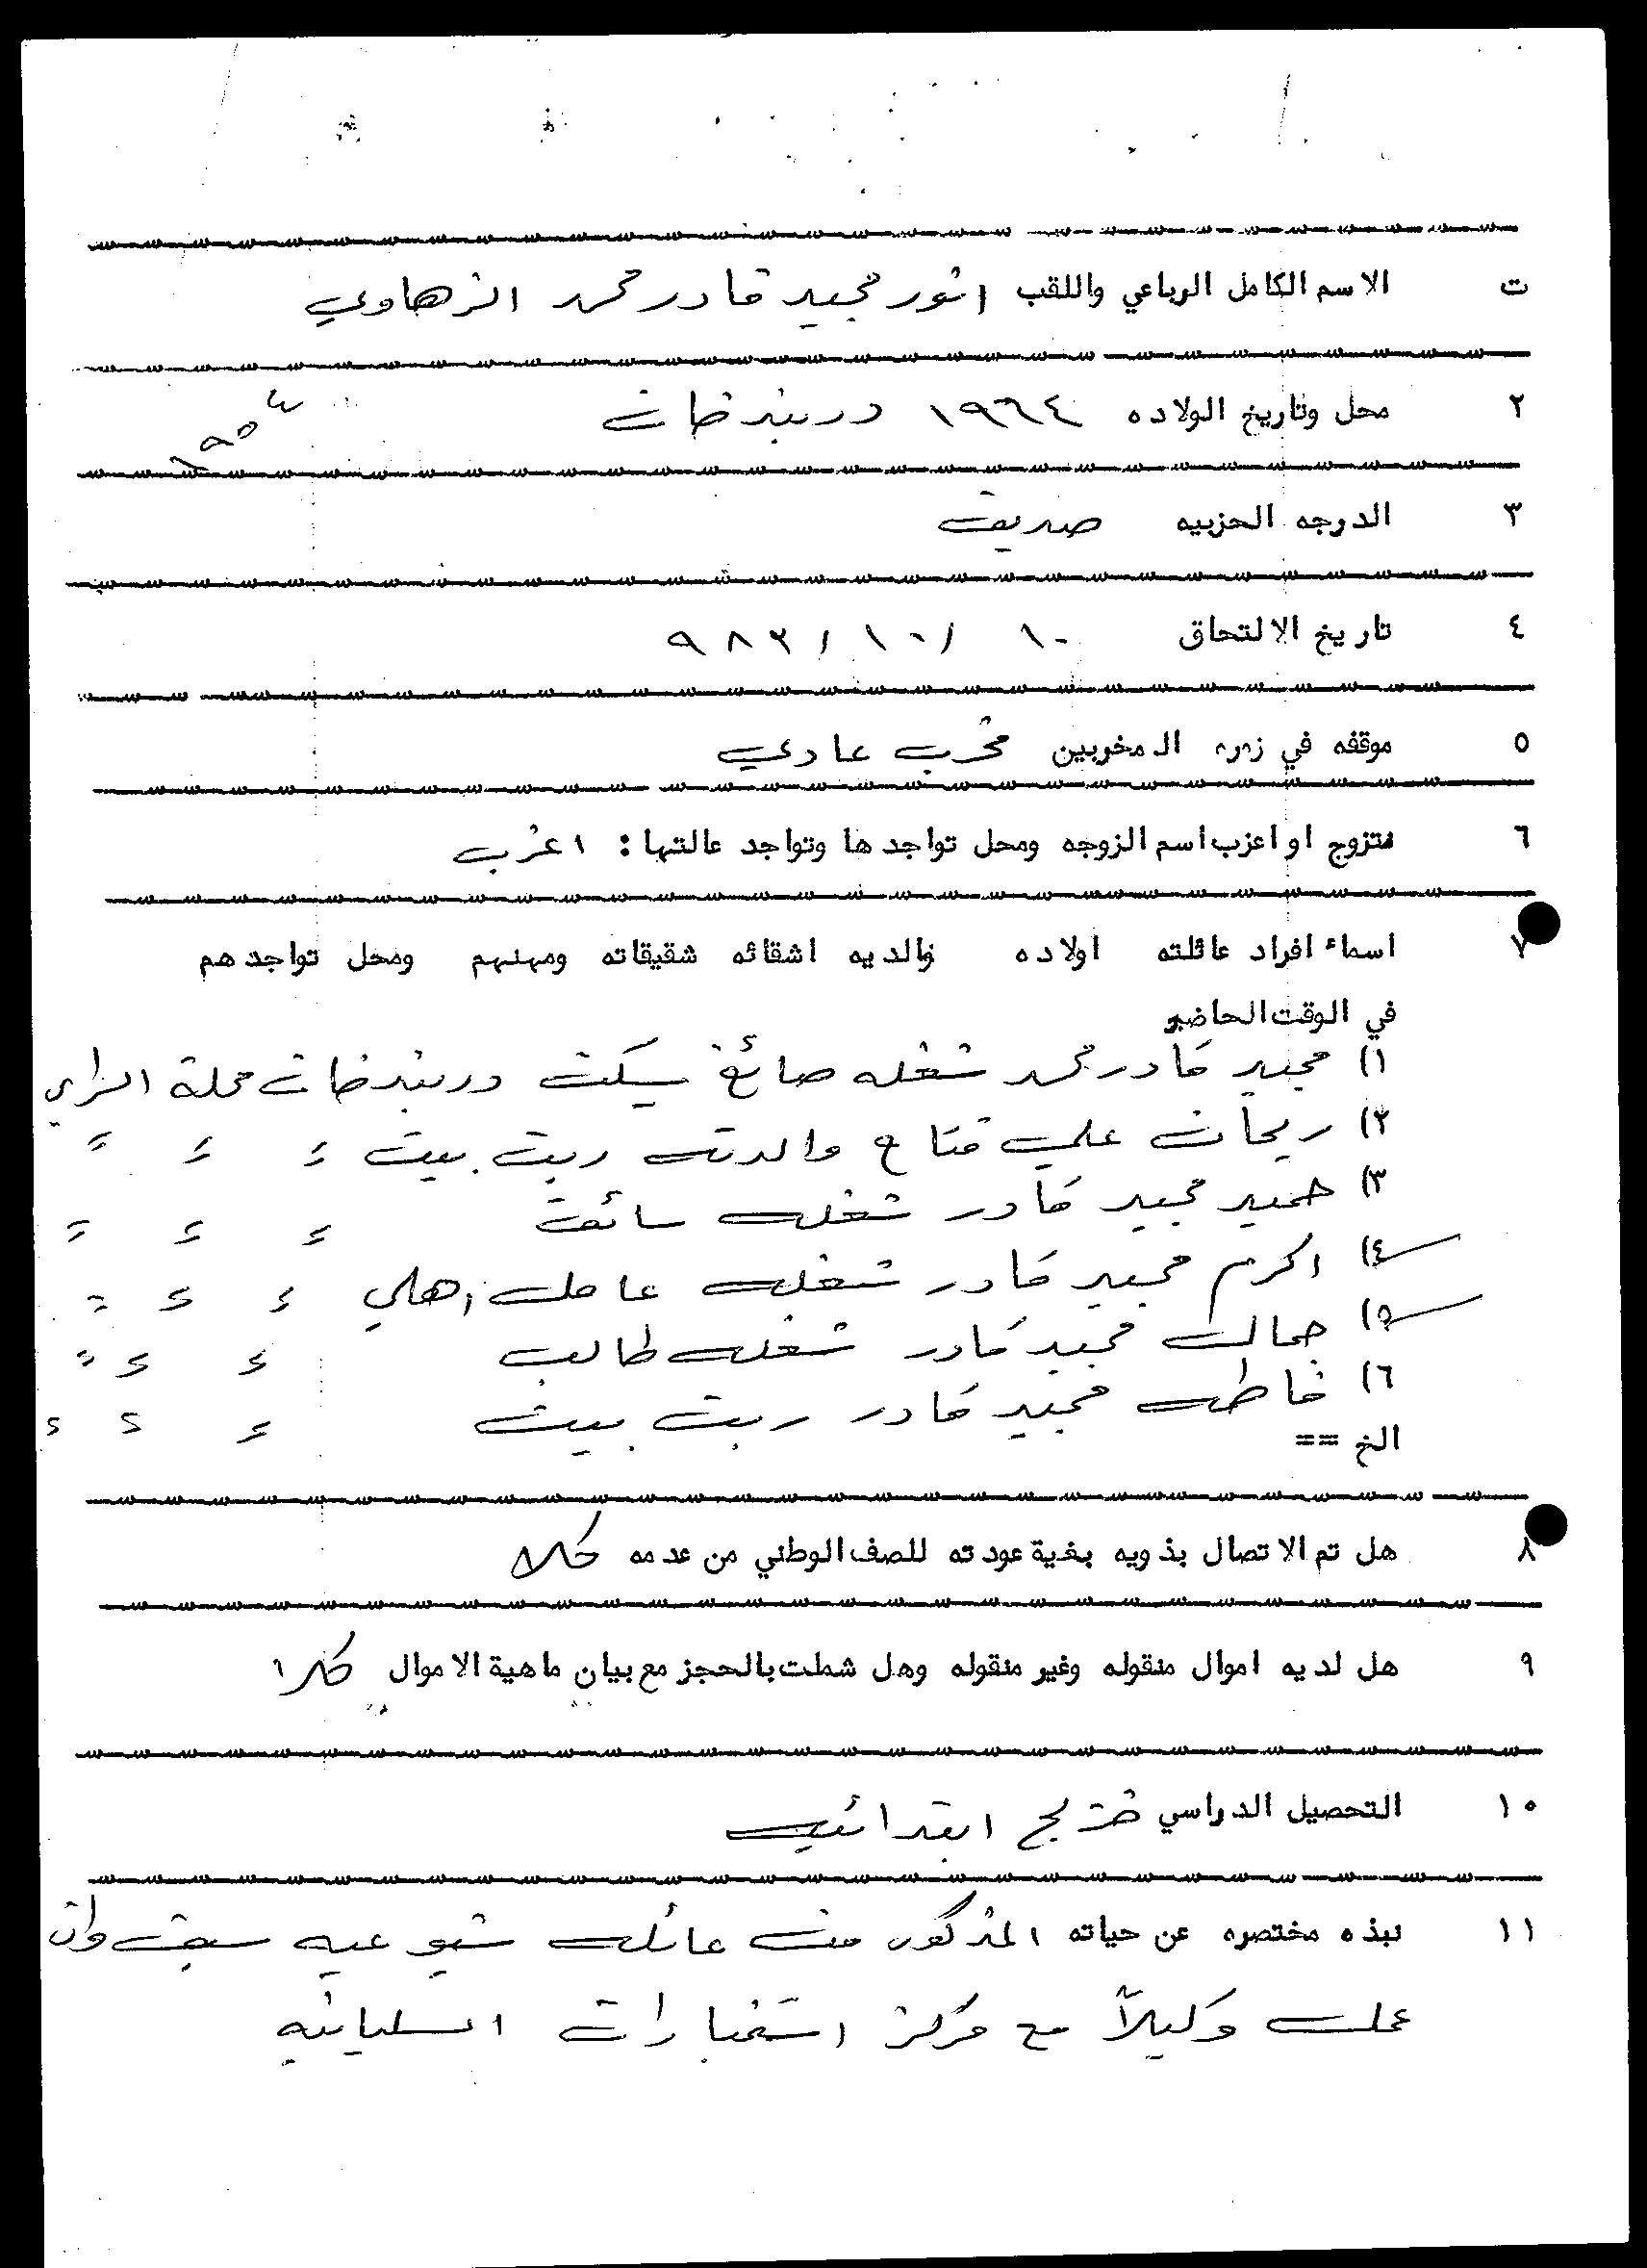 ت الاسم الكامل الرباعي واللقب انور مجيد قادر محمد الزهاوي
٢ محل وتاريخ الولاده ١٩٦٤ دربندخان
٣ الدرجه الحزبيه صديق
٤ تاريخ الالتحاق ١٠ / ١٠ / ٩٨٢
٥ موقفه في زمره المخربين مخرب عادي
٦ متزوج او اعزب اسم الزوجه ومحل تواجدها وتواجد عائلتها : اعزب
٧ اسماء افراد عائلته اولاده والديه اشقائه شقيقاته ومهنهم ومحل تواجدهم
في الوقت الحاضر
١) مجيد قادر محمد شغله صائغ يسكن دربندخان محلة السراي
٢) ريحان علي فتاح والدته ربت بيت = = =
٣) حميد مجيد قادر شغله سائق = = =
٤) اكرم مجيد قادر شغله عامل اهلي = = =
٥) جمال مجيد قادر شغله طالب = = =
٦) فاطمه مجيد قادر ربت بيت = = =
الخ ==
٨ هل تم الاتصال بذويه بغية عودته للصف الوطني من عدمه كلا
٩ هل لديه اموال منقوله وغير منقوله وهل شملت بالحجز مع بيان ماهية الاموال كلا
١٠ التحصيل الدراسي خريج ابتدائيه
١١ نبذه مختصره عن حياته المذكور من عائله شيوعيه سبق وان
عمل وكيلاً مع مركز استخبارات السليمانيه